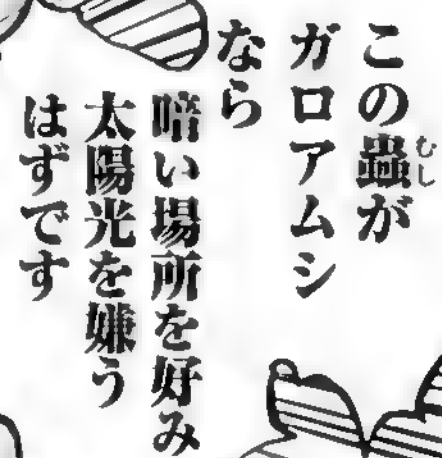 この蟲が
ガロアムシ
なら
暗い場所を好み
太陽光を嫌う
はずです